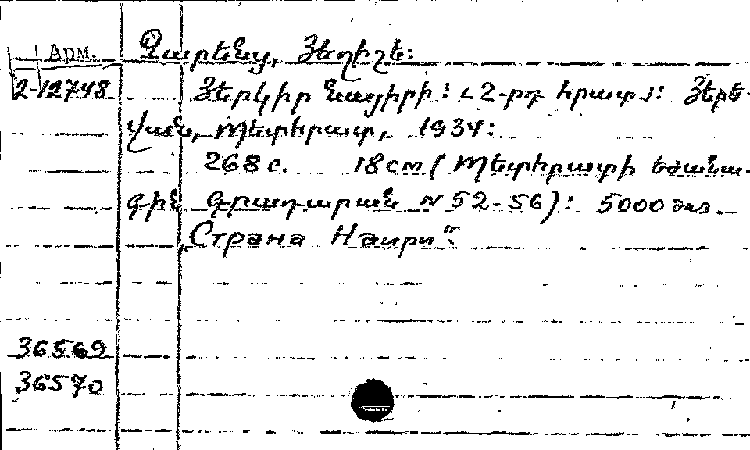 Арм.
Չարենց, Յեղիշե:
2-12748
Յերկիր Նայիրի: [2-րդ հրատ]: Յերե-
վան, Պետհրատ, 1934:
268 с. 18 см (Պետհրատի եժանա-
գին գրադարան № 52-56): 5000 экз.
„Страна Наири“.
36569
36570